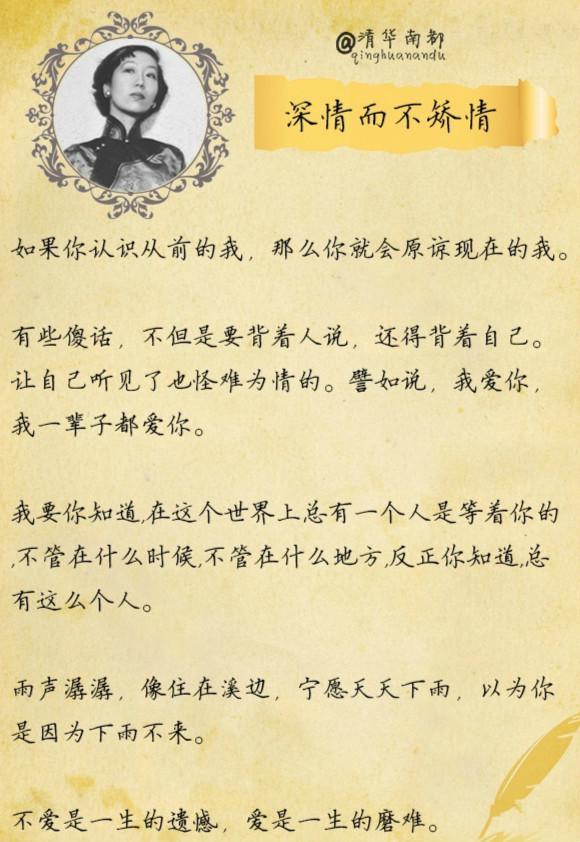 @清华南都
qinghuanandu
深情而不矫情
如果你认识从前的我，那么你就会原谅现在的我。
有些傻话，不但是要背着人说，还得背着自己。
让自己听见了也怪难为情的。譬如说，我爱你，
我一辈子都爱你。
我要你知道,在这个世界上总有一个人是等着你的
,不管在什么时候,不管在什么地方,反正你知道,总
有这么个人。
雨声潺潺，像住在溪边，宁愿天天下雨，以为你
是因为下雨不来。
不爱是一生的遗憾，爱是一生的磨难。